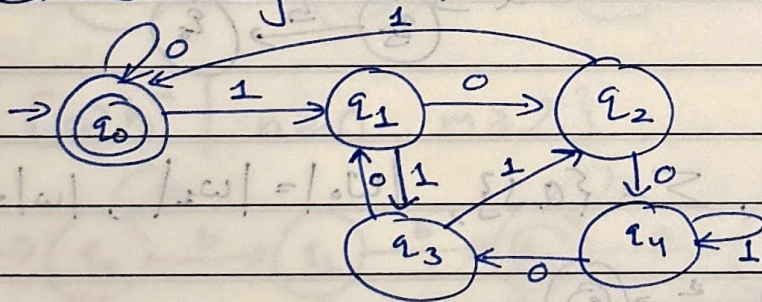 1
0
q0 1 q1 0 q2
0 1 1 0
q3 0 q4 1